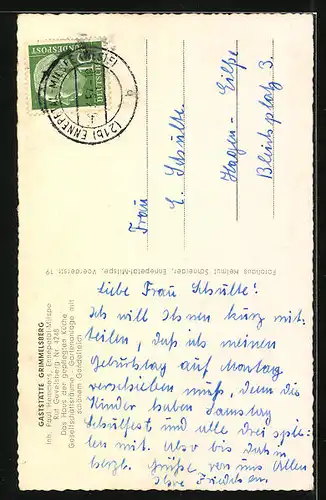 GASTSTÄTTE GRIMMELSBERG
Inh. Paul Hemmert, Ennepetal-Milspe
Ruf Gevelsberg Nr. 4248
Das Haus der gepflegten Küche
Gesellschaftsräume / Gartenanlage mit
schönem Gondelteich
Fotohaus Helmut Schneider, Ennepetal-Milspe, Voerderstr. 19
BUNDESPOST
(21b) ENNEPETAL MILSPE
Frau
E. Schulte
Hagen-Eilpe
Bleichplatz 3.
Liebe Frau Schulte!
Ich will Ihnen kurz mit-
teilen, daß ich meinen
Geburtstag auf Montag
verschieben muß, denn die
Kinder haben Samstag
Schulfest und alle drei spie-
len mit. Also bis dahin
herzl. Grüße von uns Allen
Ihre